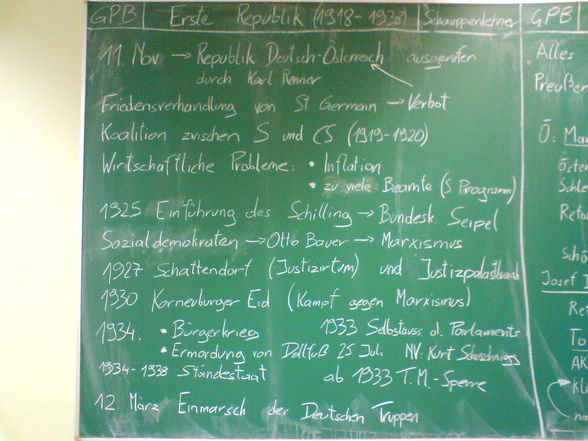 GPB
Erste Republik (1918-1938)
11. Nov → Republik Deutsch-Österreich ausgerufen
durch Karl Renner
Friedensverhandlung von St Germain → Verbot
Koalition zwischen S und CS (1919-1920)
Wirtschaftliche Probleme: • Inflation
• zu viele Beamte (S. Programm)
1925 Einführung des Schilling → Bundesk. Seipel
Sozialdemokraten → Otto Bauer → Marxismus
1927 Schattendorf (Justizirrtum) und Justizpalastbrand
1930 Korneuburger Eid (Kampf gegen Marxismus)
1934: • Bürgerkrieg
1933 Selbstauss. d. Parlaments
• Ermordung von Dollfuß 25 Juli NV: Kurt Schuschnigg
1934-1938 Ständestaat
ab 1933 T.M.-Sperre
12. März Einmarsch der Deutschen Truppen
GPB
Alles
Preußen
Ö:
Josef